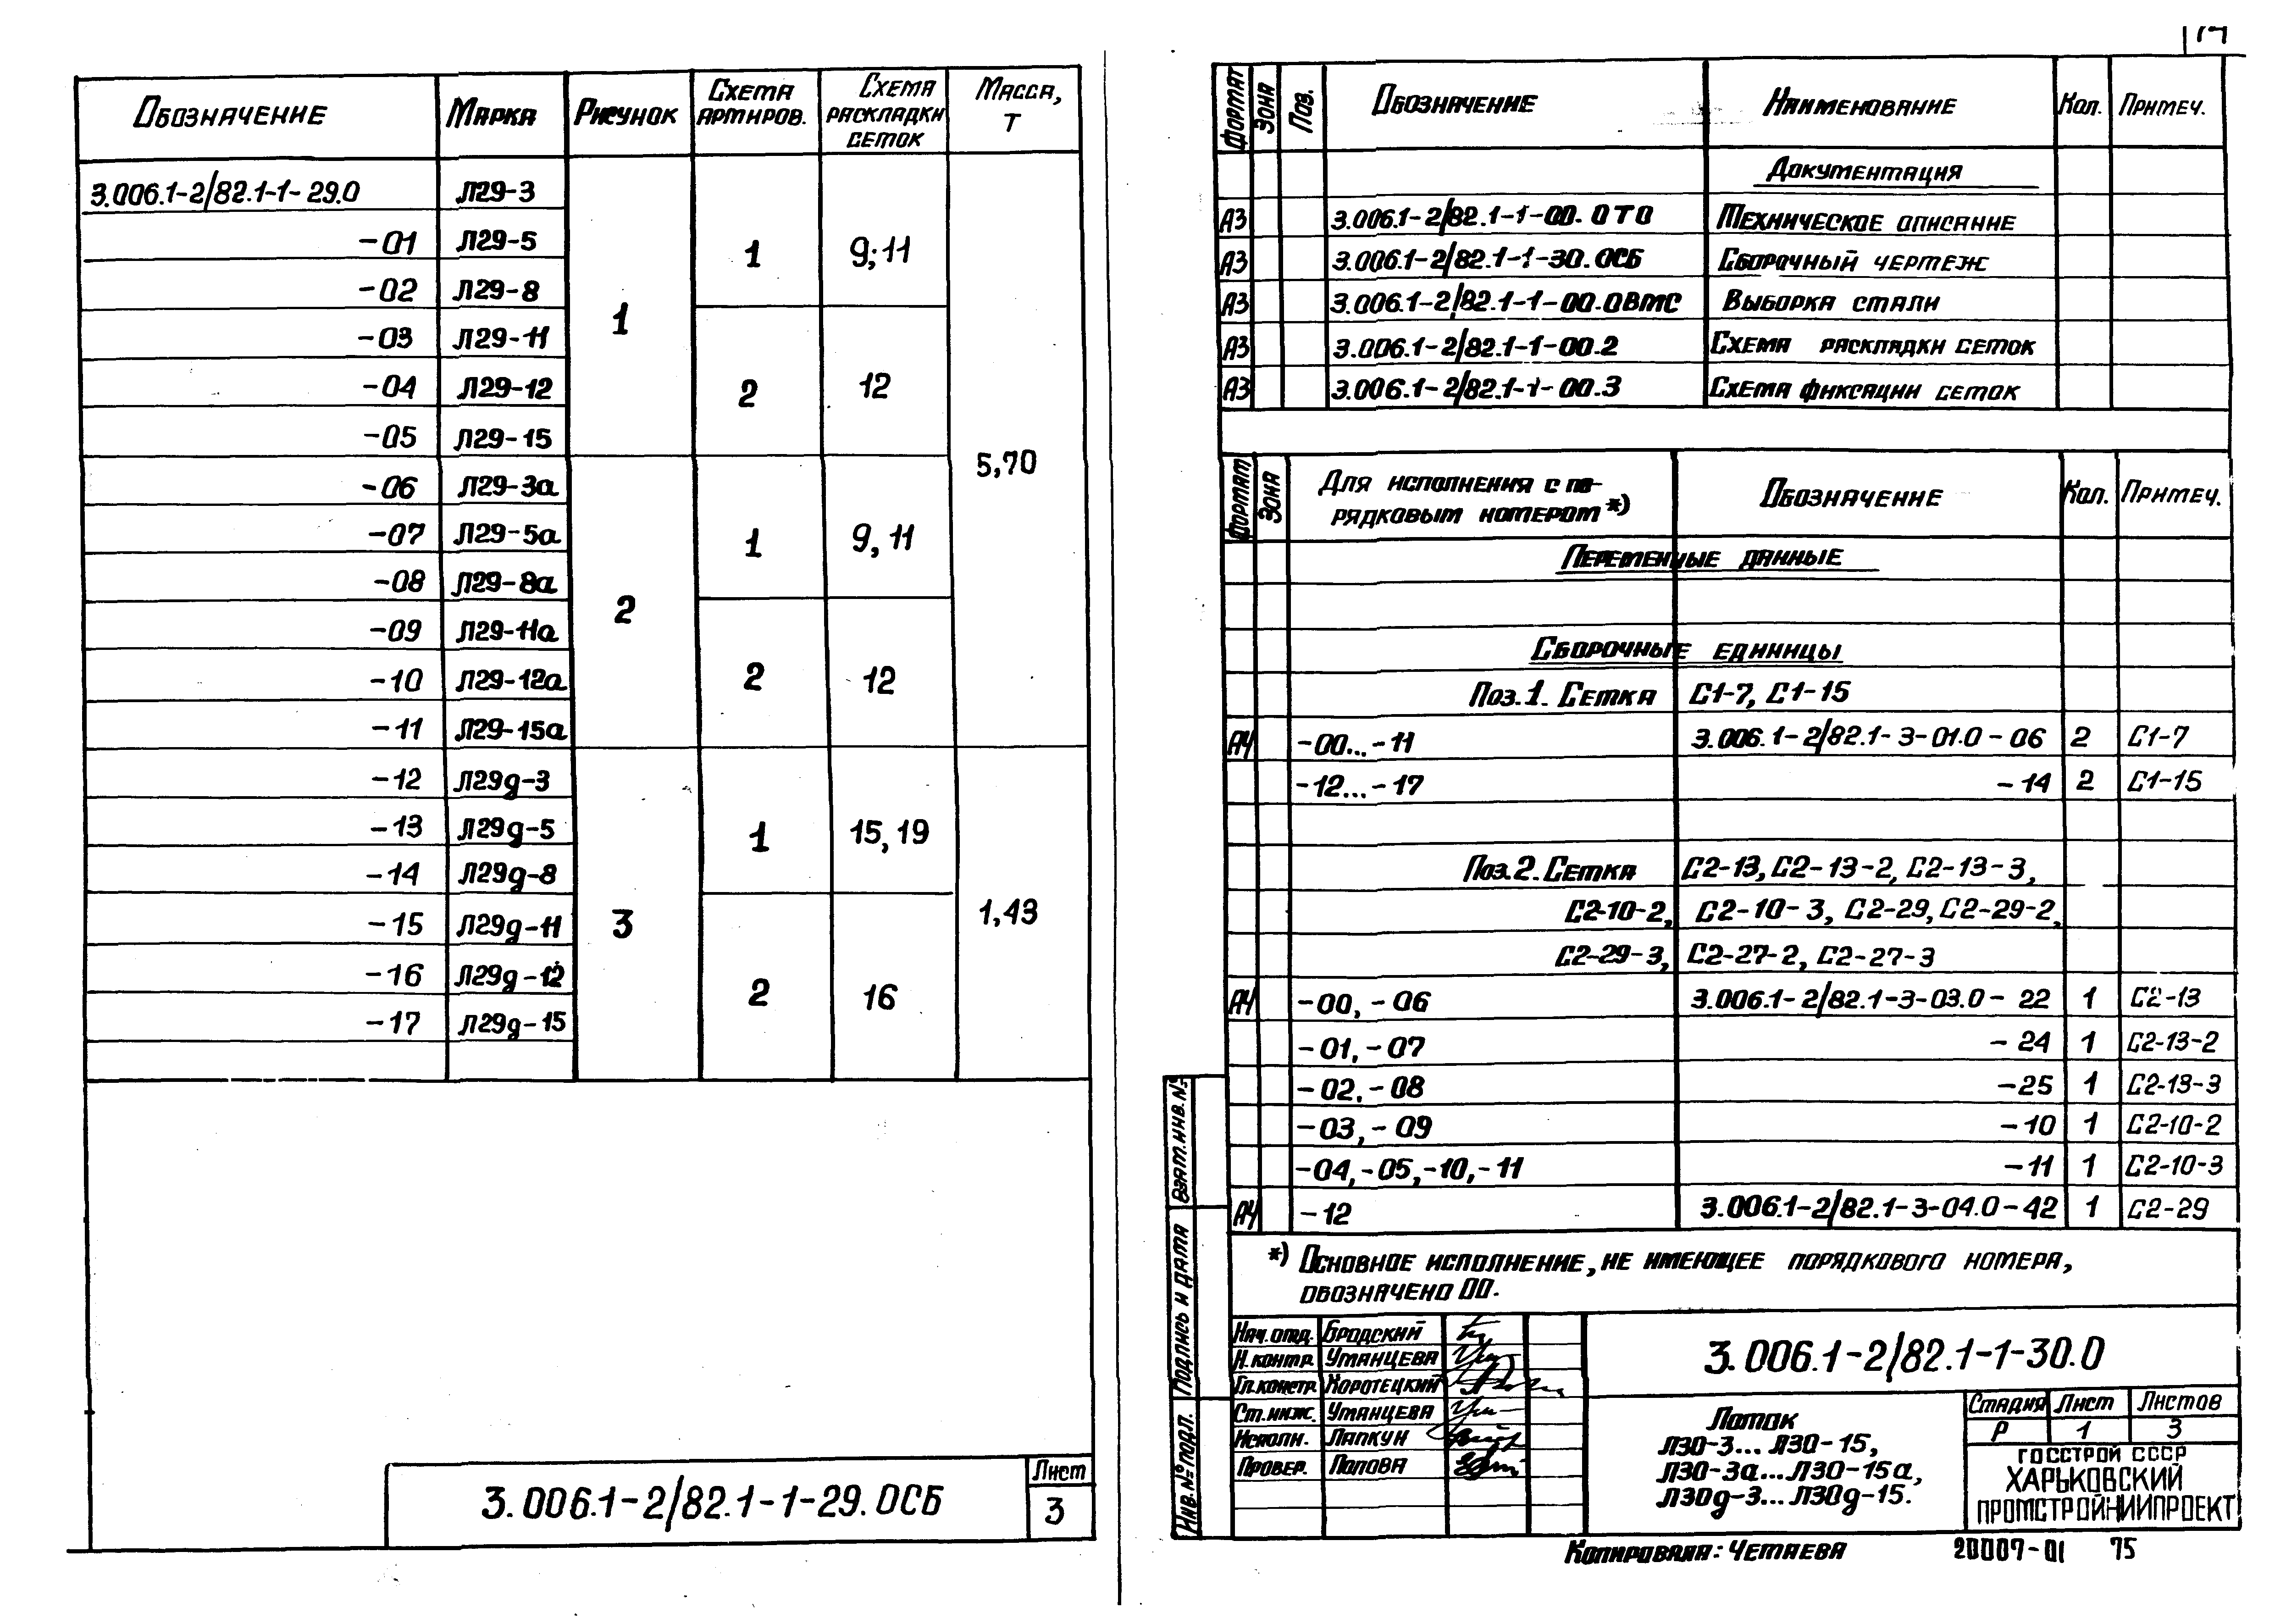 Обозначение Марка Рисунок Схема армиров. Схема раскладки сеток Масса, т
3.006.1-2/82.1-1-29.0 Л29-3
-01 Л29-5 1 9; 11
-02 Л29-8
-03 Л29-11 1
-04 Л29-12 2 12
-05 Л29-15
5,70
-06 Л29-3а
-07 Л29-5а 1 9, 11
-08 Л29-8а
2
-09 Л29-11а
-10 Л29-12а 2 12
-11 Л29-15а
-12 Л29д-3
-13 Л29д-5 1 15, 19
-14 Л29д-8
-15 Л29д-11 3 1,43
-16 Л29д-12 2 16
-17 Л29д-15
3.006.1-2/82.1-1-29.0СБ
Лист
3
Формат Зона Поз. Обозначение Наименование Кол. Примеч.
Документация
А3 3.006.1-2/82.1-1-00.0ТО Техническое описание
А3 3.006.1-2/82.1-1-30.0СБ Сборочный чертеж
А3 3.006.1-2/82.1-1-00.0ВМС Выборка стали
А3 3.006.1-2/82.1-1-00.2 Схема раскладки сеток
А3 3.006.1-2/82.1-1-00.3 Схема фиксации сеток
Формат Зона Для исполнения с по- Обозначение Кол. Примеч.
рядковым номером *)
Переменные данные
Сборочные единицы
Поз.1. Сетка С1-7, С1-15
А4 -00... -11 3.006.1-2/82.1-3-01.0-06 2 С1-7
-12... -17 -14 2 С1-15
Поз.2. Сетка С2-13, С2-13-2, С2-13-3,
С2-10-2, С2-10-3, С2-29, С2-29-2,
С2-29-3, С2-27-2, С2-27-3
А4 -00, -06 3.006.1-2/82.1-3-03.0-22 1 С2-13
-01, -07 -24 1 С2-13-2
-02, -08 -25 1 С2-13-3
-03, -09 -10 1 С2-10-2
-04, -05, -10, -11 -11 1 С2-10-3
А4 -12 3.006.1-2/82.1-3-04.0-42 1 С2-29
*) Основное исполнение, не имеющее порядкового номера,
обозначено 00.
Взам.инв.№
Подпись и дата
Инв.№подл.
Нач.отд. Бродский
Н.контр. Уманцева
Гл.констр. Коротецкий
Ст.инж. Уманцева
Исполн. Лапкун
Провер. Попова
3.006.1-2/82.1-1-30.0
Лоток
Л30-3... Л30-15,
Л30-3а... Л30-15а,
Л30д-3... Л30д-15.
Стадия Лист Листов
Р 1 3
ГОССТРОЙ СССР
ХАРЬКОВСКИЙ
ПРОМСТРОЙНИИПРОЕКТ
Копировала: Четаева 20007-01 75